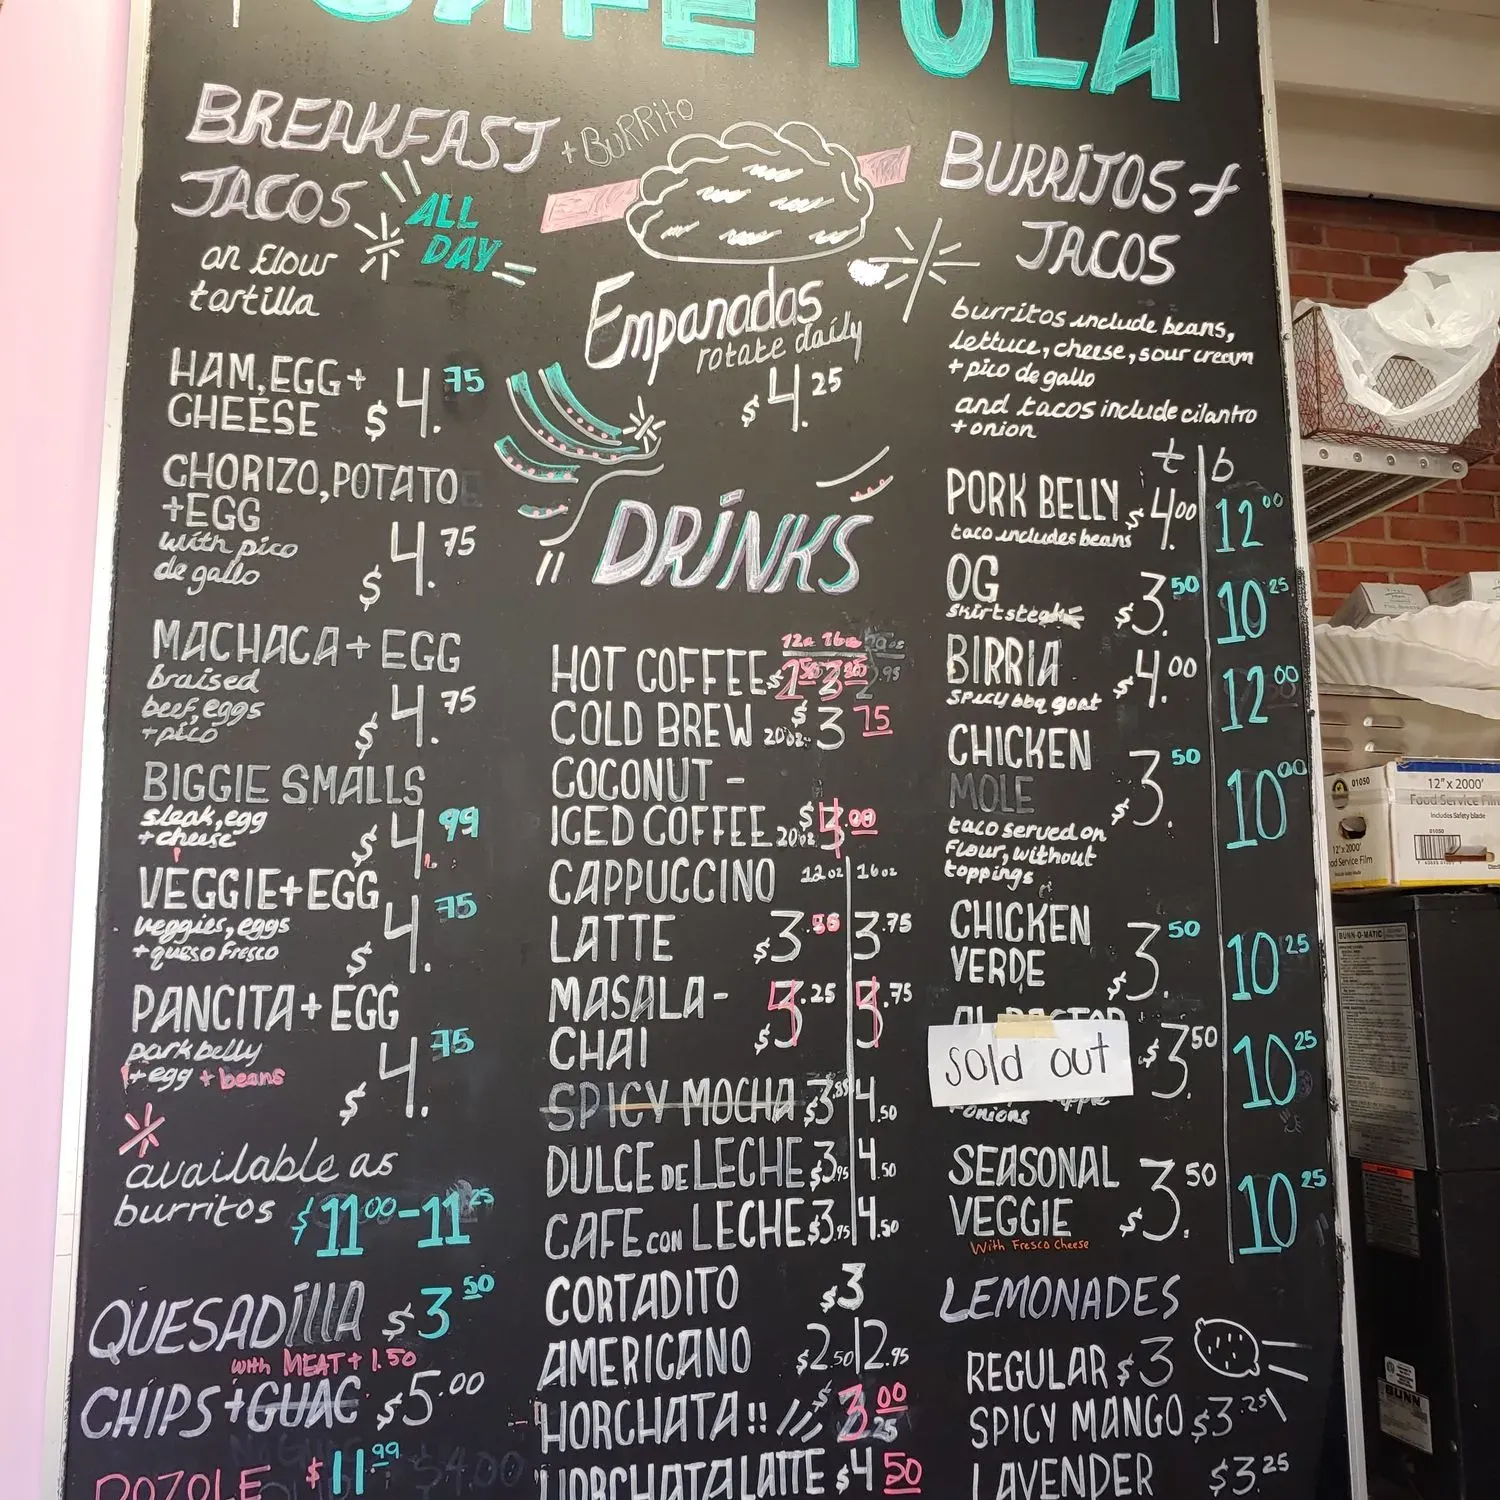 CAFE TOLA
BREAKFAST + BURRITO
TACOS ALL
DAY
on flour
tortilla
HAM, EGG +
CHEESE $4.75
CHORIZO, POTATO
+EGG
with pico
de gallo $4.75
MACHACA + EGG
braised
beef, eggs
+pico $4.75
BIGGIE SMALLS
steak, egg
+cheese $4.99
VEGGIE+EGG
veggies, eggs
+queso fresco $4.75
PANCITA + EGG
pork belly
+egg + beans $4.75
*
available as
burritos $11.00-11.25
QUESADILLA $3.50
with MEAT + 1.50
CHIPS +GUAC $5.00
POZOLE $11.99 $4.00
Empanadas
rotate daily
$4.25
DRINKS
12oz 16oz
HOT COFFEE
COLD BREW 20oz. $3 75
COCONUT -
ICED COFFEE 20oz
CAPPUCCINO 12oz 16oz
LATTE $3. 3.75
MASALA- .25 .75
CHAI
SPICY MOCHA $3.85 4.50
DULCE DE LECHE $3.95 4.50
CAFE CON LECHE $3.95 4.50
CORTADITO $3
AMERICANO $2.50 2.95
HORCHATA!! $3.00
HORCHATA LATTE $4 50
BURRITOS +
TACOS
burritos include beans,
lettuce, cheese, sour cream
+ pico de gallo
and tacos include cilantro
+ onion
t b
PORK BELLY $4.00 12.00
taco includes beans
OG $3.50 10.25
skirt steak
BIRRIA $4.00 12.00
spicy bbq goat
CHICKEN $3.50 10.00
MOLE
taco served on
flour, without
toppings
CHICKEN
VERDE $3.50 10.25
AL PASTOR
sold out $3.50 10.25
+onions
SEASONAL
VEGGIE $3.50 10.25
With Fresco Cheese
LEMONADES
REGULAR $3
SPICY MANGO $3.25
LAVENDER $3.25
12" x 2000'
Food Service Film
Includes Safety blade
01050
12" x 2000'
od Service Film
BUNN-O-MATIC
BUNN